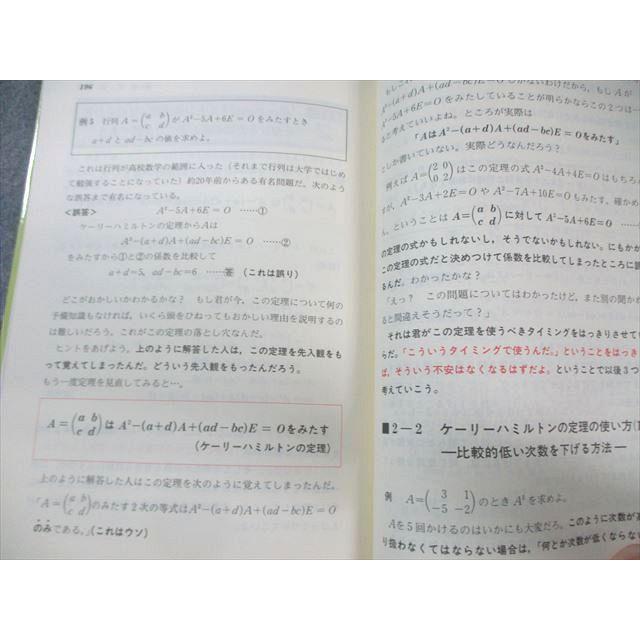 196
例5 行列 A=(a b c d) が A²−5A+6E=O をみたすとき
a+d と ad−bc の値を求めよ。
これは行列が高校数学の範囲に入った(それまで行列は大学ではじめ
て勉強することになっていた)約20年前からある有名問題だ。次のよう
な誤答まで有名になっている。
<誤答> A²−5A+6E=O ……①
ケーリーハミルトンの定理からAは
A²−(a+d)A+(ad−bc)E=O ……②
をみたすから①と②の係数を比較して
a+d=5, ad−bc=6 ……答 (これは誤り)
どこがおかしいかわかるかな? もし君が今、この定理について何の
予備知識もなければ、いくら頭をひねってもおかしい理由を説明するの
は難しいだろう。これがこの定理の落とし穴なんだ。
ヒントをあげよう。上のように解答した人は、この定理を先入観をも
って覚えてしまったんだ。どういう先入観をもったんだろう。
もう一度定理を見直してみると…。
A=(a b c d) は A²−(a+d)A+(ad−bc)E=O をみたす
(ケーリーハミルトンの定理)
上のように解答した人はこの定理を次のように覚えてしまったんだ。
「A=(a b c d) のみたす2次の等式は A²−(a+d)A+(ad−bc)E=O
のみである。」(これはウソ)
しかないわけだから、もしAが
−(a+d)A+(ad−bc)E=O
−5A+6E=O をみたしていることが明らかならこの2つは一
と考えていいよね。ところが実際は
「AはA²−(a+d)A+(ad−bc)E=O をみたす」
としか書いていない。実際どうなんだろう?
例えば A=(2 0 0 2) はこの定理の式 A²−4A+4E=O はもちろん
すが、A²−3A+2E=O や A²−7A+10E=O もみたす。確かめ
ん。ということは A=(a b c d) に対して A²−5A+6E=O
の定理の式かもしれないし、そうでないかもしれない。にもかか
この定理の式だと決めつけて係数を比較してしまったところに誤
るんだ。わかったかな?
「えっ? この問題についてはわかったけど、また別の聞かれ
ると間違えそうだって?」
それは君がこの定理を使うべきタイミングをはっきりさせてい
らだ。「こういうタイミングで使うんだ。」ということをはっき
ば、そういう不安はなくなるはずだよ。ということで以後3つ
考えていこう。
■2−2 ケーリーハミルトンの定理の使い方(1
―比較的低い次数を下げる方法―
例 A=(3 1 −5 −2) のとき A⁵を求めよ。
Aを5回かけるのはいかにも大変だろう。このように次数が高
り扱わなくてはならない場合は、「何とか次数が低くならない